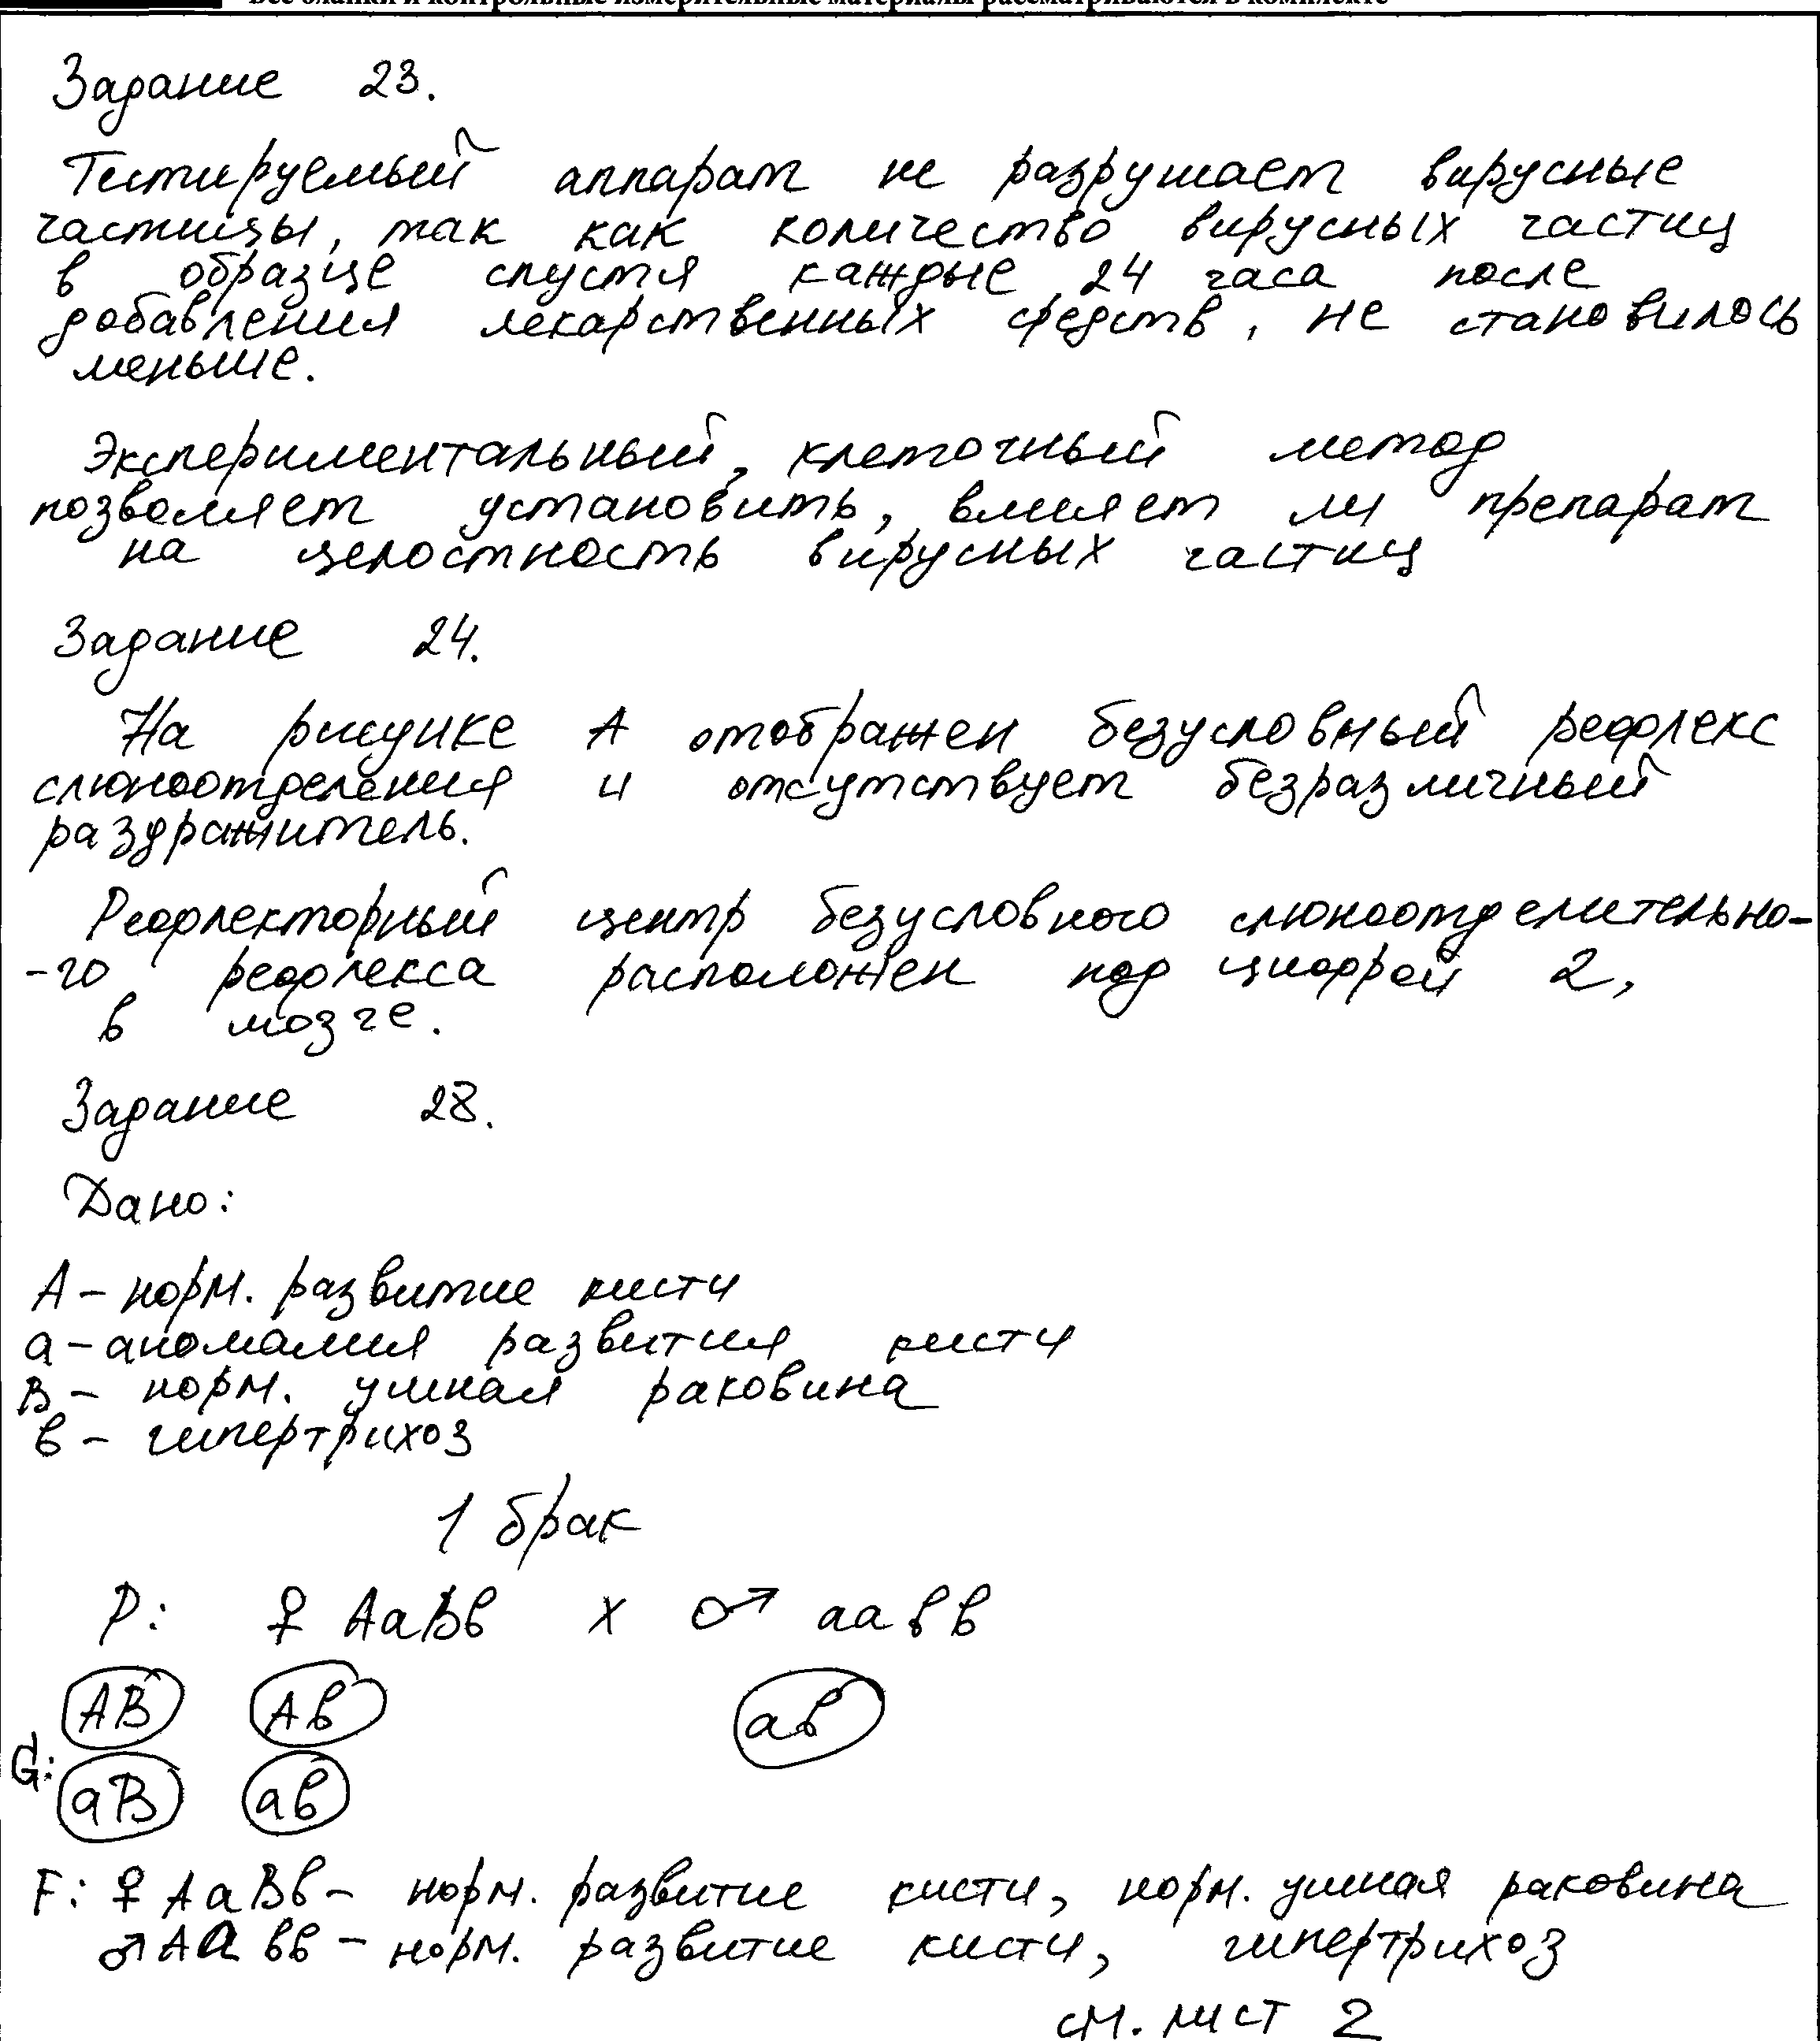 Все бланки и контрольные измерительные материалы рассматриваются в комплекте
Задание 23.
Тестируемый аппарат не разрушает вирусные
частицы, так как количество вирусных частиц
в образце спустя каждые 24 часа после
добавления лекарственных средств, не становилось
меньше.
Экспериментальный, клеточный метод
позволяет установить, влияет ли препарат
на целостность вирусных частиц
Задание 24.
На рисунке А отображен безусловный рефлекс
слюноотделения и отсутствует безразличный
раздражитель.
Рефлекторный центр безусловного слюноотделительно-
-го рефлекса расположен под цифрой 2,
в мозге.
Задание 28.
Дано:
А – норм. развитие кисти
а – аномалия развития кисти
В – норм. ушная раковина
в – гипертрихоз
1 брак
Р: ♀ АаВв х ♂ аавв
АВ Ав ав
G:
аВ ав
F: ♀ АаВв – норм. развитие кисти, норм. ушная раковина
♂ Аавв – норм. развитие кисти, гипертрихоз
см. лист 2